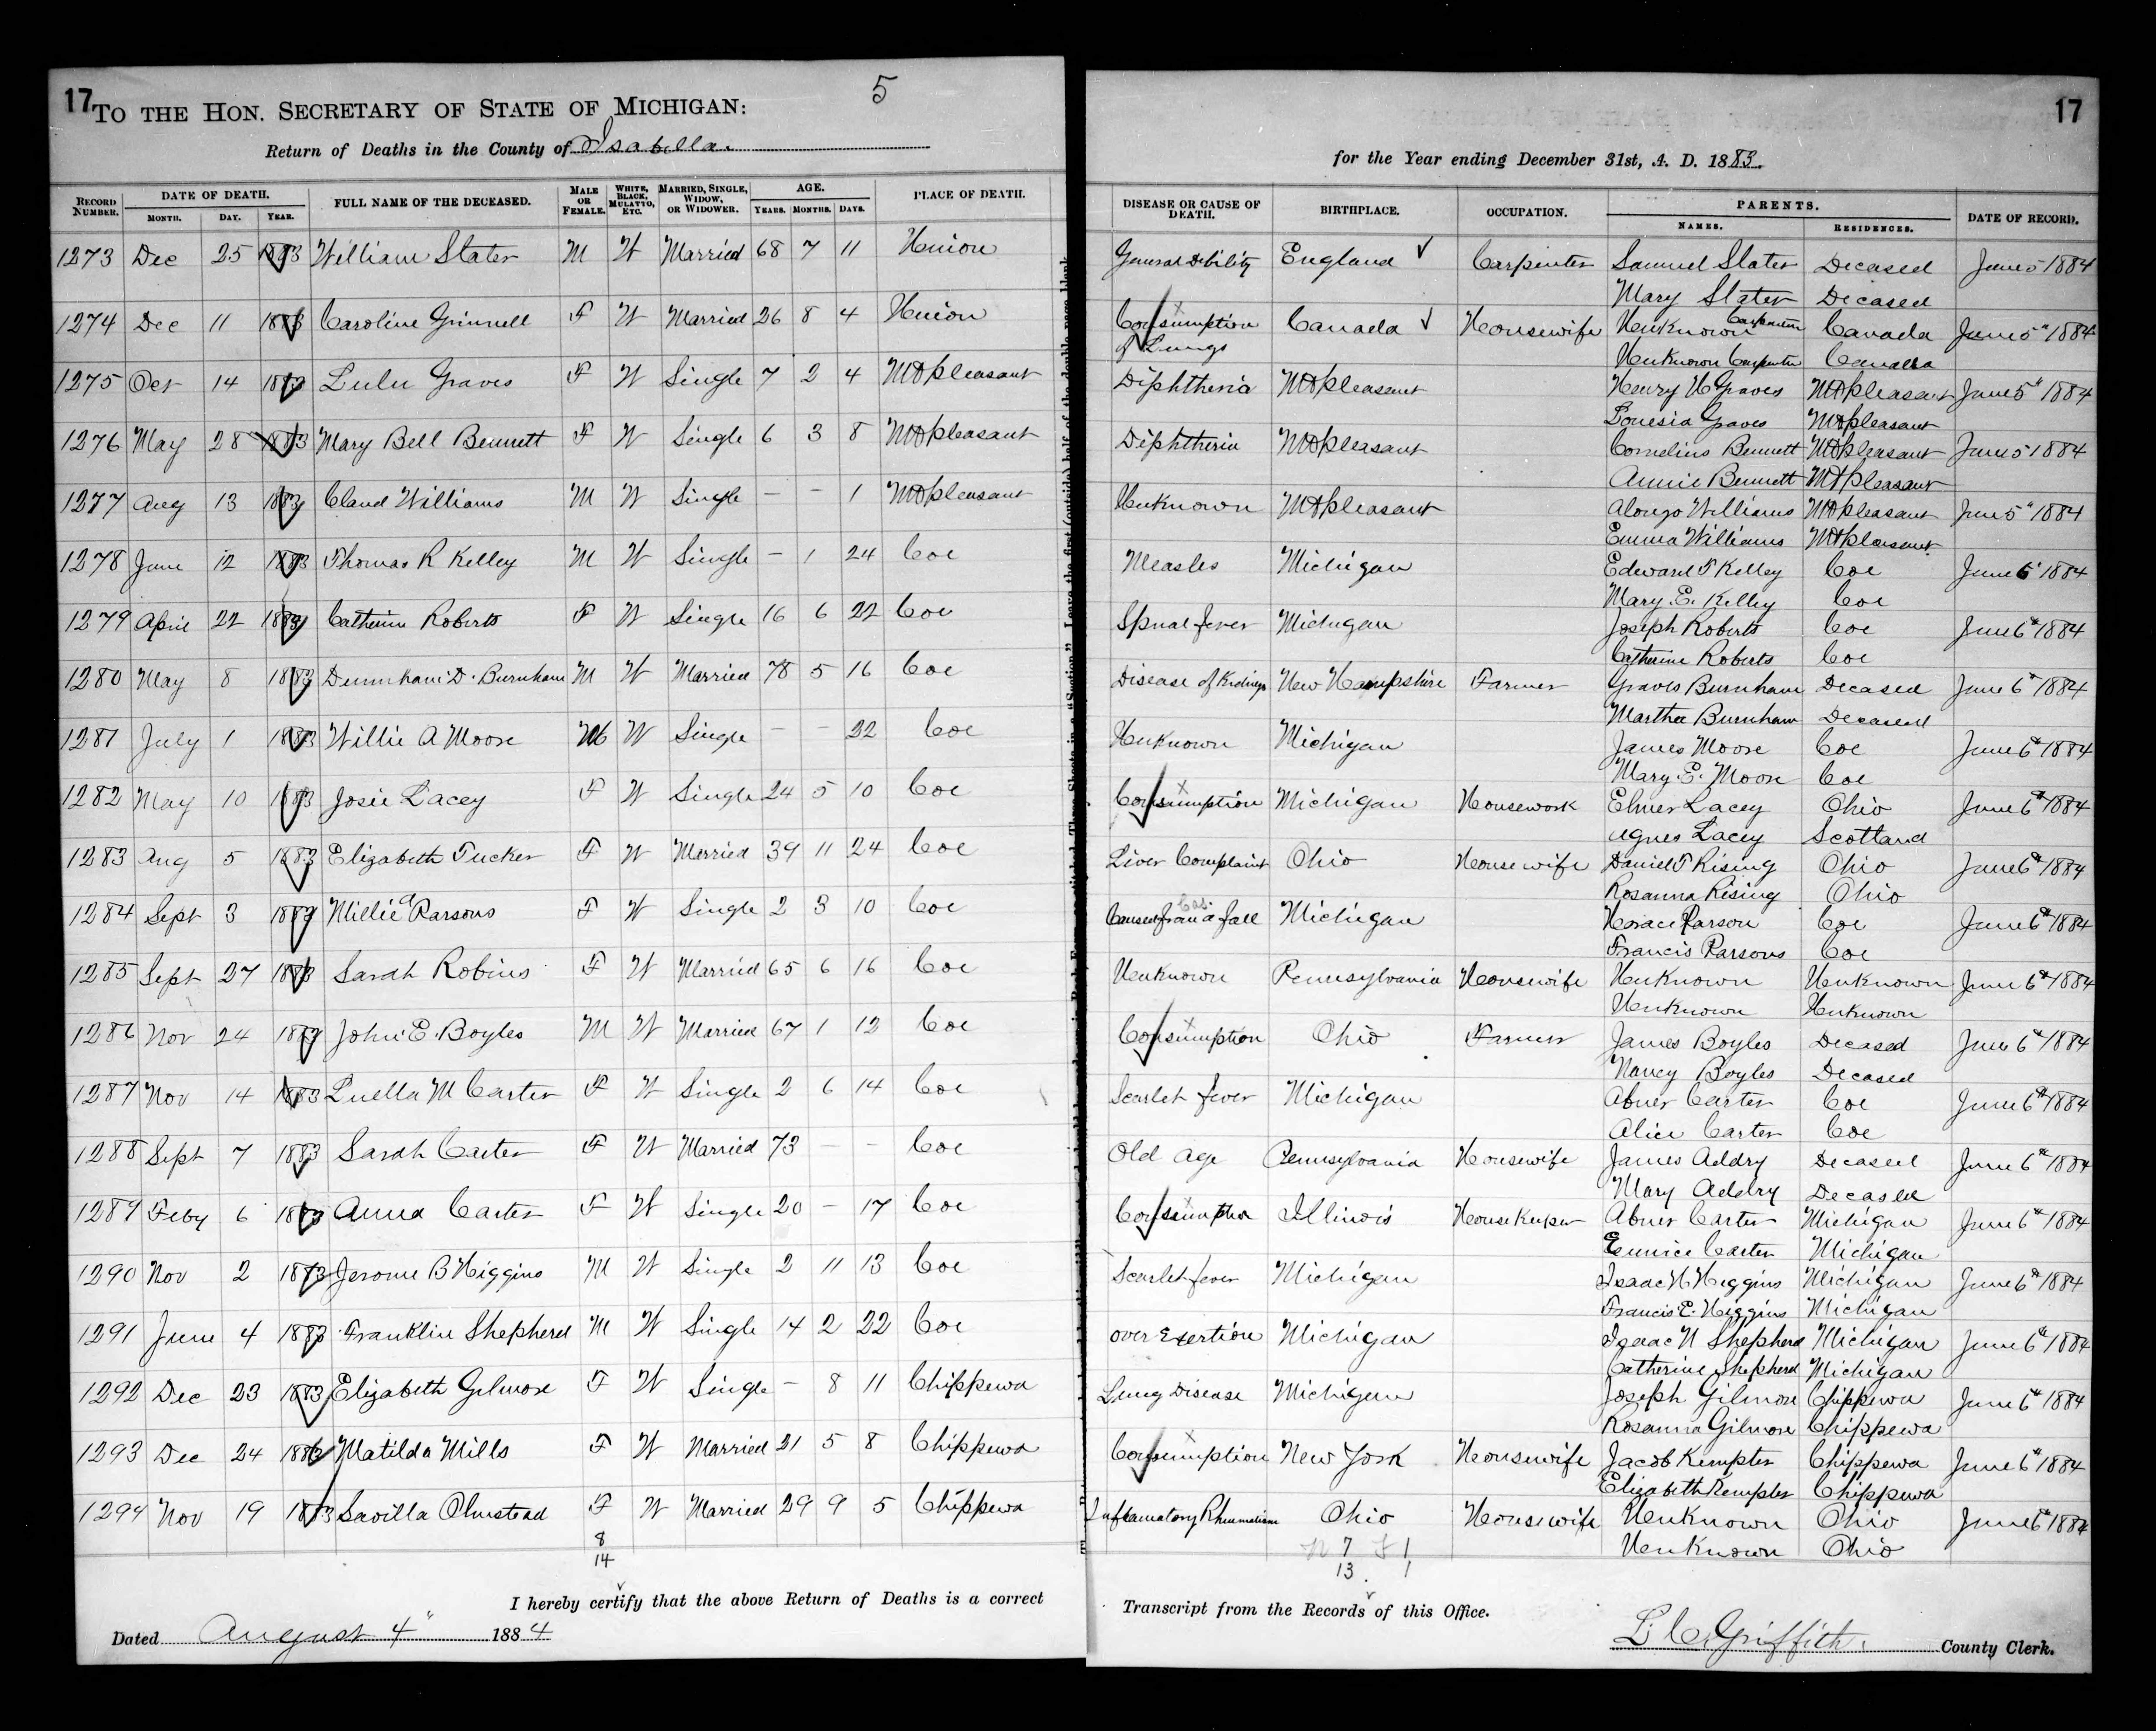 17 TO THE HON. SECRETARY OF STATE OF MICHIGAN: 5
Return of Deaths in the County of Isabella.
RECORD NUMBER. DATE OF DEATH. MONTH. DAY. YEAR. FULL NAME OF THE DECEASED. MALE OR FEMALE. WHITE, BLACK, MULATTO, ETC. MARRIED, SINGLE, WIDOW, OR WIDOWER. AGE. YEARS. MONTHS. DAYS. PLACE OF DEATH.
1273 Dec 25 1883 William Slater M W Married 68 7 11 Union
1274 Dec 11 1883 Caroline Grinnell F W Married 26 8 4 Union
1275 Oct 14 1883 Lulu Graves F W Single 7 2 4 Mt pleasant
1276 May 28 1883 Mary Bell Bennett F W Single 6 3 8 Mt pleasant
1277 Aug 13 1883 Claud Williams M W Single – – 1 Mt pleasant
1278 June 12 1883 Thomas R Kelley M W Single – 1 24 Coe
1279 April 22 1883 Catherine Roberts F W Single 16 6 22 Coe
1280 May 8 1883 D. Burnham M W Married 78 5 16 Coe
1281 July 1 1883 Willie A Moore M W Single – – 22 Coe
1282 May 10 1883 Josie Lacey F W Single 24 5 10 Coe
1283 Aug 5 1883 Elizabeth Tucker F W Married 39 11 24 Coe
1284 Sept 3 1883 Millie a Parsons F W Single 2 3 10 Coe
1285 Sept 27 1883 Sarah Robins F W Married 65 6 16 Coe
1286 Nov 24 1883 John E. Boyles M W Married 67 1 12 Coe
1287 Nov 14 1883 Luella M Carter F W Single 2 6 14 Coe
1288 Sept 7 1883 Sarah Carter F W Married 73 – – Coe
1289 Feby 6 1883 Anna Carter F W Single 20 – 17 Coe
1290 Nov 2 1883 Jerome B Higgins M W Single 2 11 13 Coe
1291 June 4 1883 Franklin Shepherd M W Single 14 2 22 Coe
1292 Dec 23 1883 Elizabeth Gilmore F W Single – 8 11 Chippewa
1293 Dec 24 1883 Matilda Mills F W Married 21 5 8 Chippewa
1294 Nov 19 1883 Savilla Olmstead F W Married 29 9 5 Chippewa
8
14
I hereby certify that the above Return of Deaths is a correct
Dated August 4" 1884
17
for the Year ending December 31st, A. D. 1883.
DISEASE OR CAUSE OF DEATH. BIRTHPLACE. OCCUPATION. PARENTS. NAMES. RESIDENCES. DATE OF RECORD.
General Dibility England Carpenter Samuel Slater Decased June 5 1884
Mary Slater Decased
Consumption of Lungs Canada Housewife Unknown Carpenter Canada June 5" 1884
Unknown Carpenter Canada
Diphtheria Mt pleasant Henry H Graves Mt pleasant June 5" 1884
Louesia Graves Mt pleasant
Diphtheria Mt pleasant Cornelius Bennett Mt pleasant June 5 1884
Annie Bennett Mt pleasant
Unknown Mt pleasant Alonzo Williams Mt pleasant June 5" 1884
Emma Williams Mt pleasant
Measles Michigan Edward T Kelley Coe June 6 1884
Mary E. Kelley Coe
Spnal fever Michigan Joseph Roberts Coe June 6th 1884
Catherine Roberts Coe
Disease of Kidneys New Hampshire Farmer Graves Burnham Decased June 6th 1884
Martha Burnham Decased
Unknown Michigan James Moore Coe June 6th 1884
Mary E. Moore Coe
Consumption Michigan Housework Elmer Lacey Ohio June 6th 1884
Agnes Lacey Scotland
Liver Complaint Ohio Housewife Daniel T Rising Ohio June 6th 1884
Rosanna Rising Ohio
Caused from a fall Michigan Horace Parson Coe June 6th 1884
Francis Parsons Coe
Unknown Pennsylvania Housewife Unknown Unknown June 6th 1884
Unknown Unknown
Consumption Ohio Farmer James Boyles Decased June 6th 1884
Nancy Boyles Decased
Scarlet fever Michigan Abner Carter Coe June 6th 1884
Alice Carter Coe
Old Age Pennsylvania Housewife James Addry Decased June 6th 1884
Mary Addry Decased
Consumption Illinois House Keeper Abner Carter Michigan June 6th 1884
Eunice Carter Michigan
Scarlet fever Michigan Isaac N Higgins Michigan June 6th 1884
Francis E. Higgins Michigan
over Exertion Michigan Isaac N Shepherd Michigan June 6th 1884
Catherine Shepherd Michigan
Lung Disease Michigan Joseph Gilmore Chippewa June 6th 1884
Rosanna Gilmore Chippewa
Consumption New York Housewife Jacob Kempter Chippewa June 6th 1884
Elizabeth Kempter Chippewa
Inflamatory Rheumatism Ohio Housewife Unknown Ohio June 6th 1884
Unknown Ohio
N 7 F 1
13 1
Transcript from the Records of this Office.
L. C. Griffith. County Clerk.